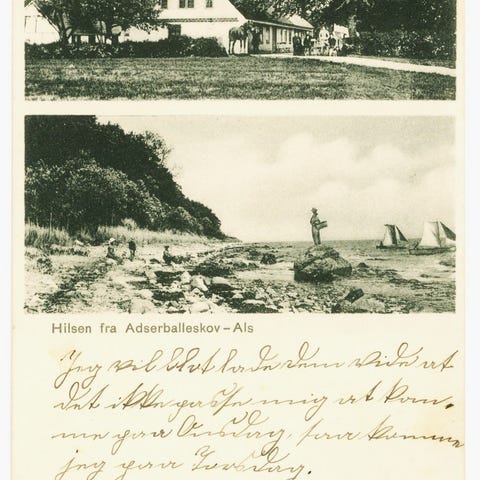 Hilsen fra Adserballeskov – Als
Jeg vil blot lade dem vide at
det ikke passe mig at kom-
me paa Onsdag, saa komme
jeg paa Torsdag.